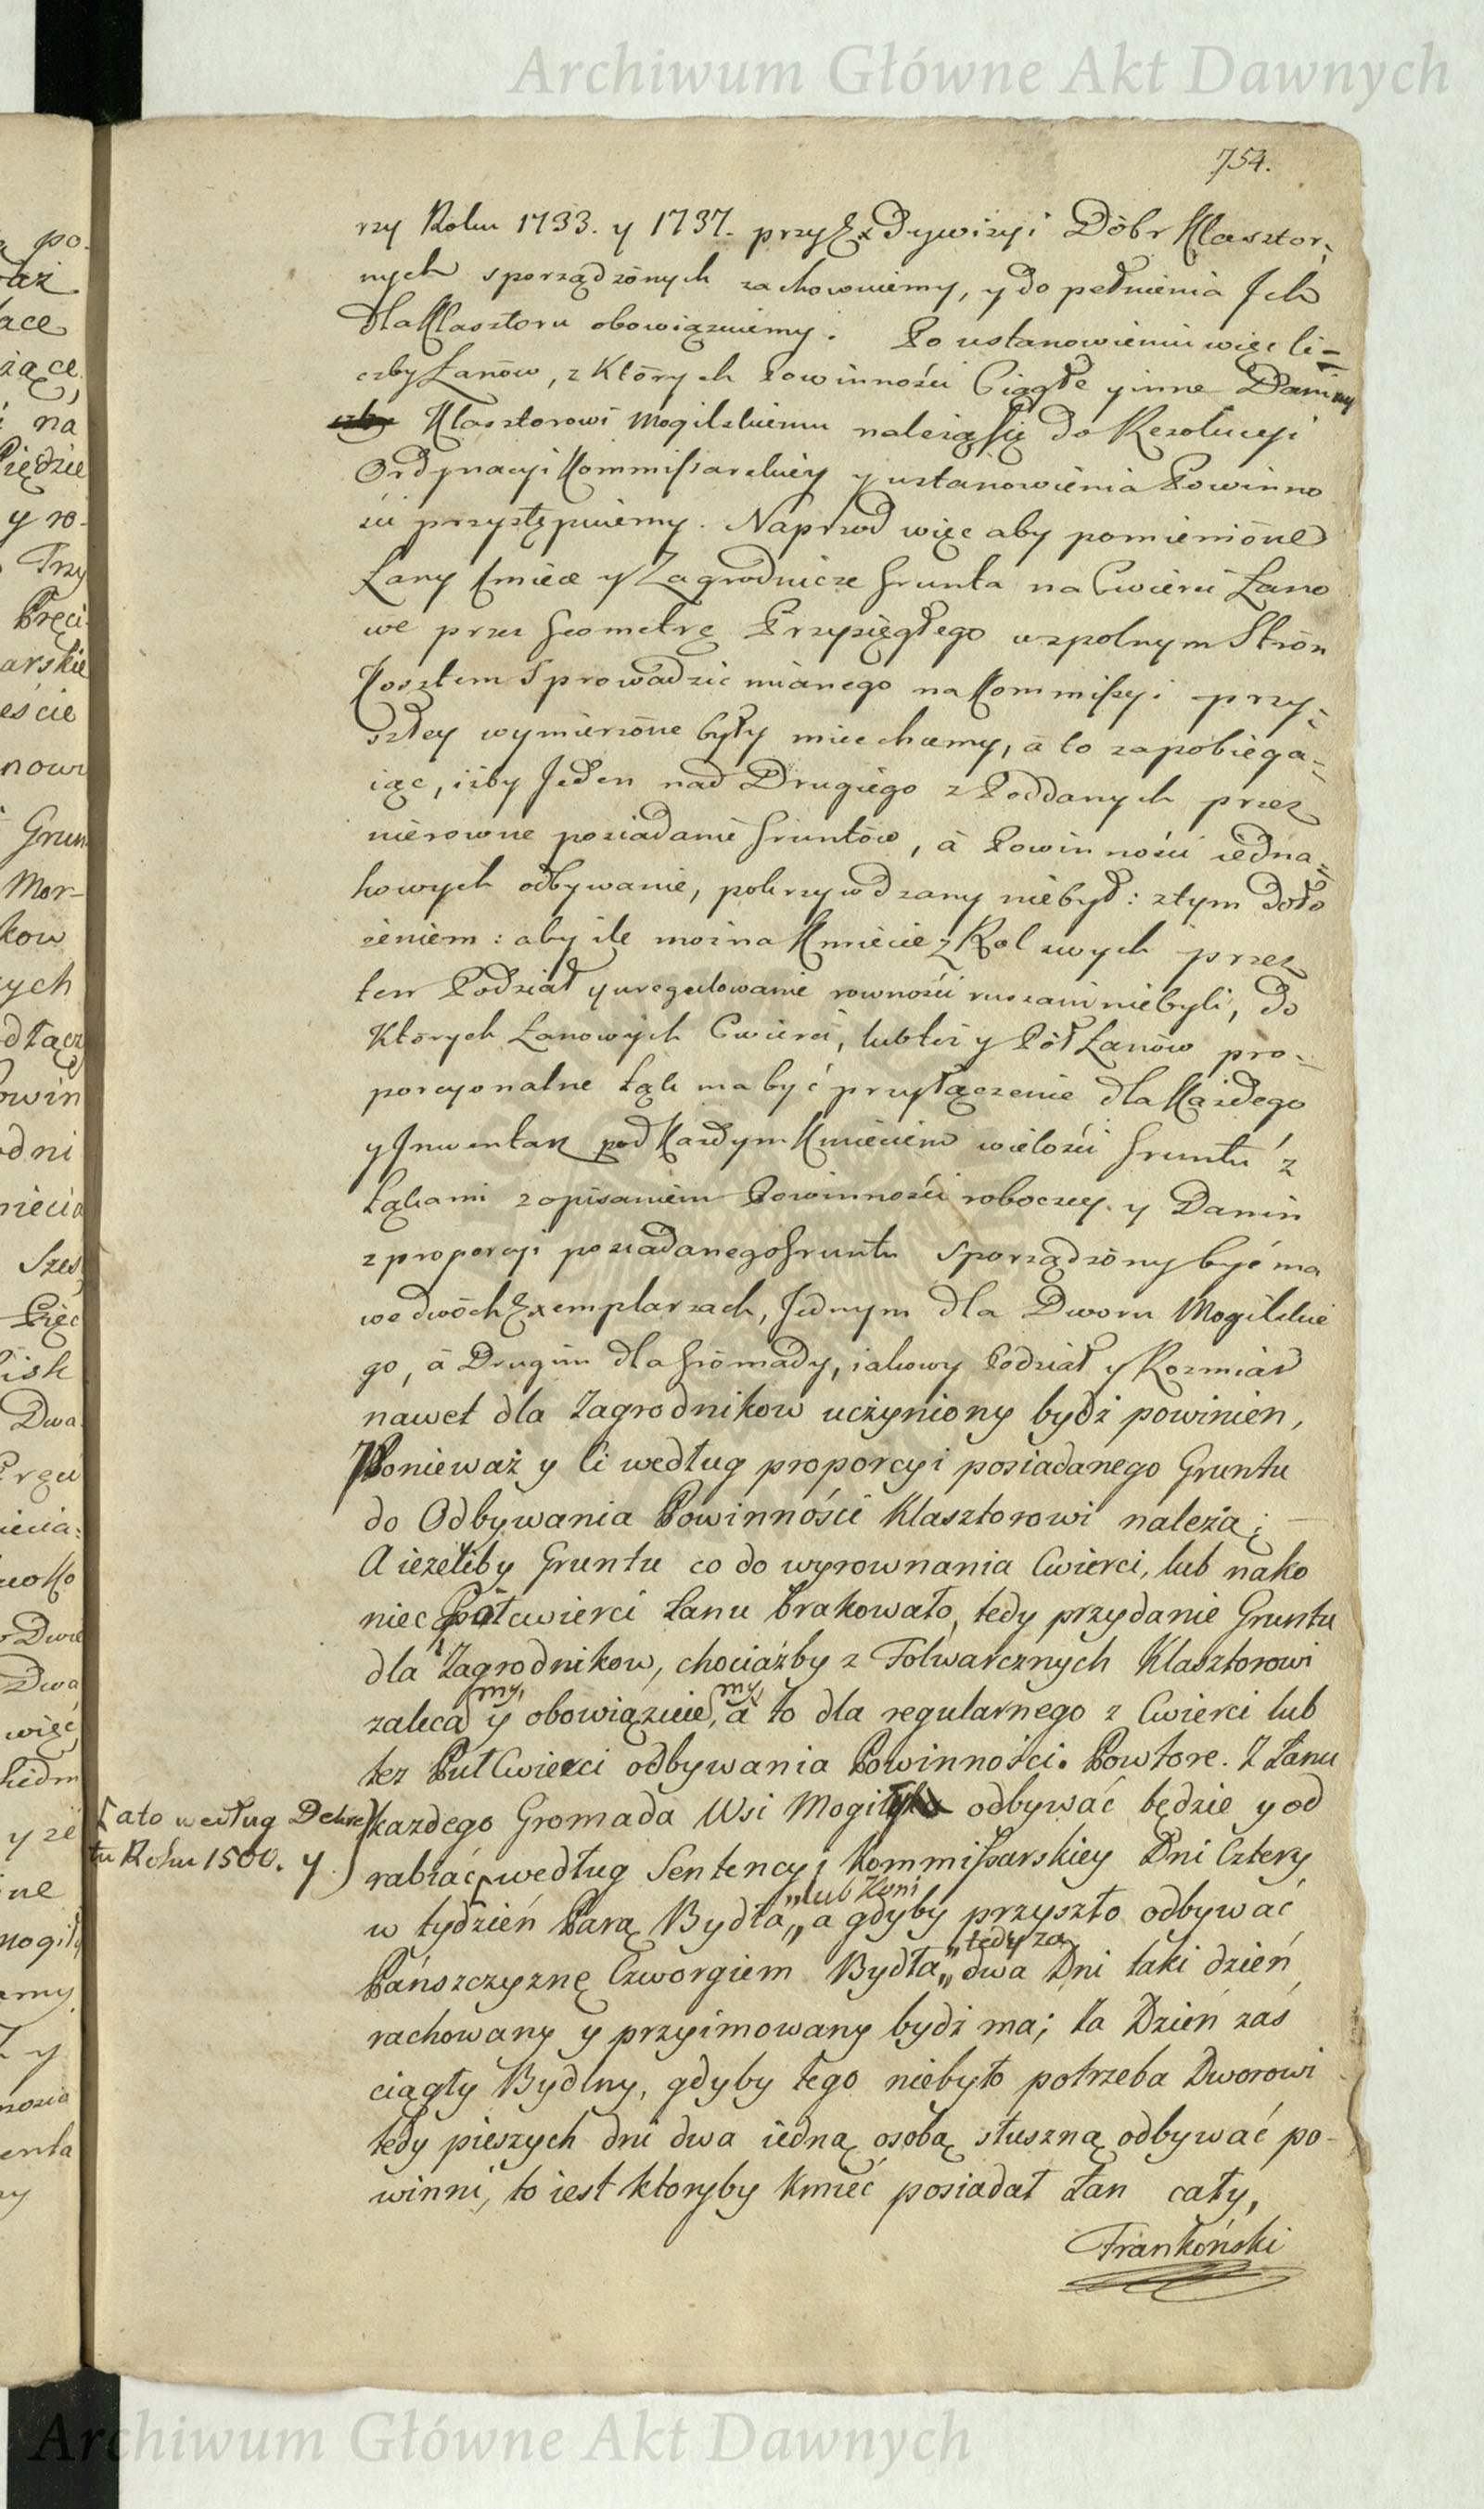 Archiwum Główne Akt Dawnych
754.
rzy Roku 1733. y 1737. przy Exdywizyi Dóbr Klasztor-
nych sporządzonych zachowuiemy, y do pełnienia Ich
dla Klasztoru obowiązuiemy. Po ustanowieniu więc li-
czby Łanów, z Których Powinności Ciągłe y inne Daniny
Klasztorowi Mogilskiemu należą się do Rezolucyi
Ordynacyi Kommissarskiey y ustanowienia Powinno
ści przystępuiemy. Naprzod więc aby pomienióne
Łany Kmiece y Zagrodnicze Grunta na Cwierci Łano
we przez Geometrę Przysięgłego wspolnym Strón
Kosztem Sprowadzić mianego na Kommissyi przy-
szłey wymierzóne były miec chcemy, à to zapobiega-
iąc, iżby Jeden nad Drugiego z Poddanych przez
nierowne posiadanie Gruntów, à Powinności iedna-
kowych odbywanie, pokrzywdzany niebył: z tym doło
żeniem: aby ile można Kmiecie z Rol swych przez
ten Podział y uregulowanie rowności ruszani niebyli, do
Których Łanowych Cwierci, lub też y Pół Łanów pro-
porcyonalne Łąk ma być przyłączenie dla Każdego
y Inwentarz pod Kazdym Kmieciem wielości Gruntu z
Łąkami z opisaniem Powinności roboczey y Danin
z proporcyi posiadanego Gruntu sporządzony być ma
we dwóch Exemplarzach, Jednym dla Dworu Mogilskie
go, à Drugim dla Gromady, iakowy Podział y Rozmiar
nawet dla Zagrodnikow uczyniony bydź powinien,
Ponieważ y Ci według proporcyi posiadanego Gruntu
do Odbywania Powinności Klasztorowi należą;
A ieżeliby Gruntu co do wyrownania Cwierci, lub nako
niec Półcwierci Łanu brakowało, tedy przydanie Gruntu
dla Zagrodnikow, chociażby z Folwarcznych Klasztorowi
my, my,
zaleca y obowiązuie, a to dla regularnego z Cwierci lub
tez Puł Cwierci odbywania Powinności. Powtore. Z Łanu
[ato według Dekre
kazdego Gromada Wsi Mogiły odbywać będzie y od
tu Roku 1500. y
rabiać, według Sentencyi Kommissarskiey Dni Cztery
„lub Koni
w tydzień Parą Bydła, „a gdyby przyszło odbywać
„tedy za
Pańszczyznę Czworgiem Bydła, „dwa Dni taki dzień
rachowany y przyimowany bydź ma; za Dzień zaś
ciągły Bydlny, gdyby tego niebyło potrzeba Dworowi
tedy pieszych dni dwa iedną osobą słuszną odbywać po-
winni, to iest ktoryby Kmieć posiadał Łan cały,
Frankoński
Archiwum Główne Akt Dawnych